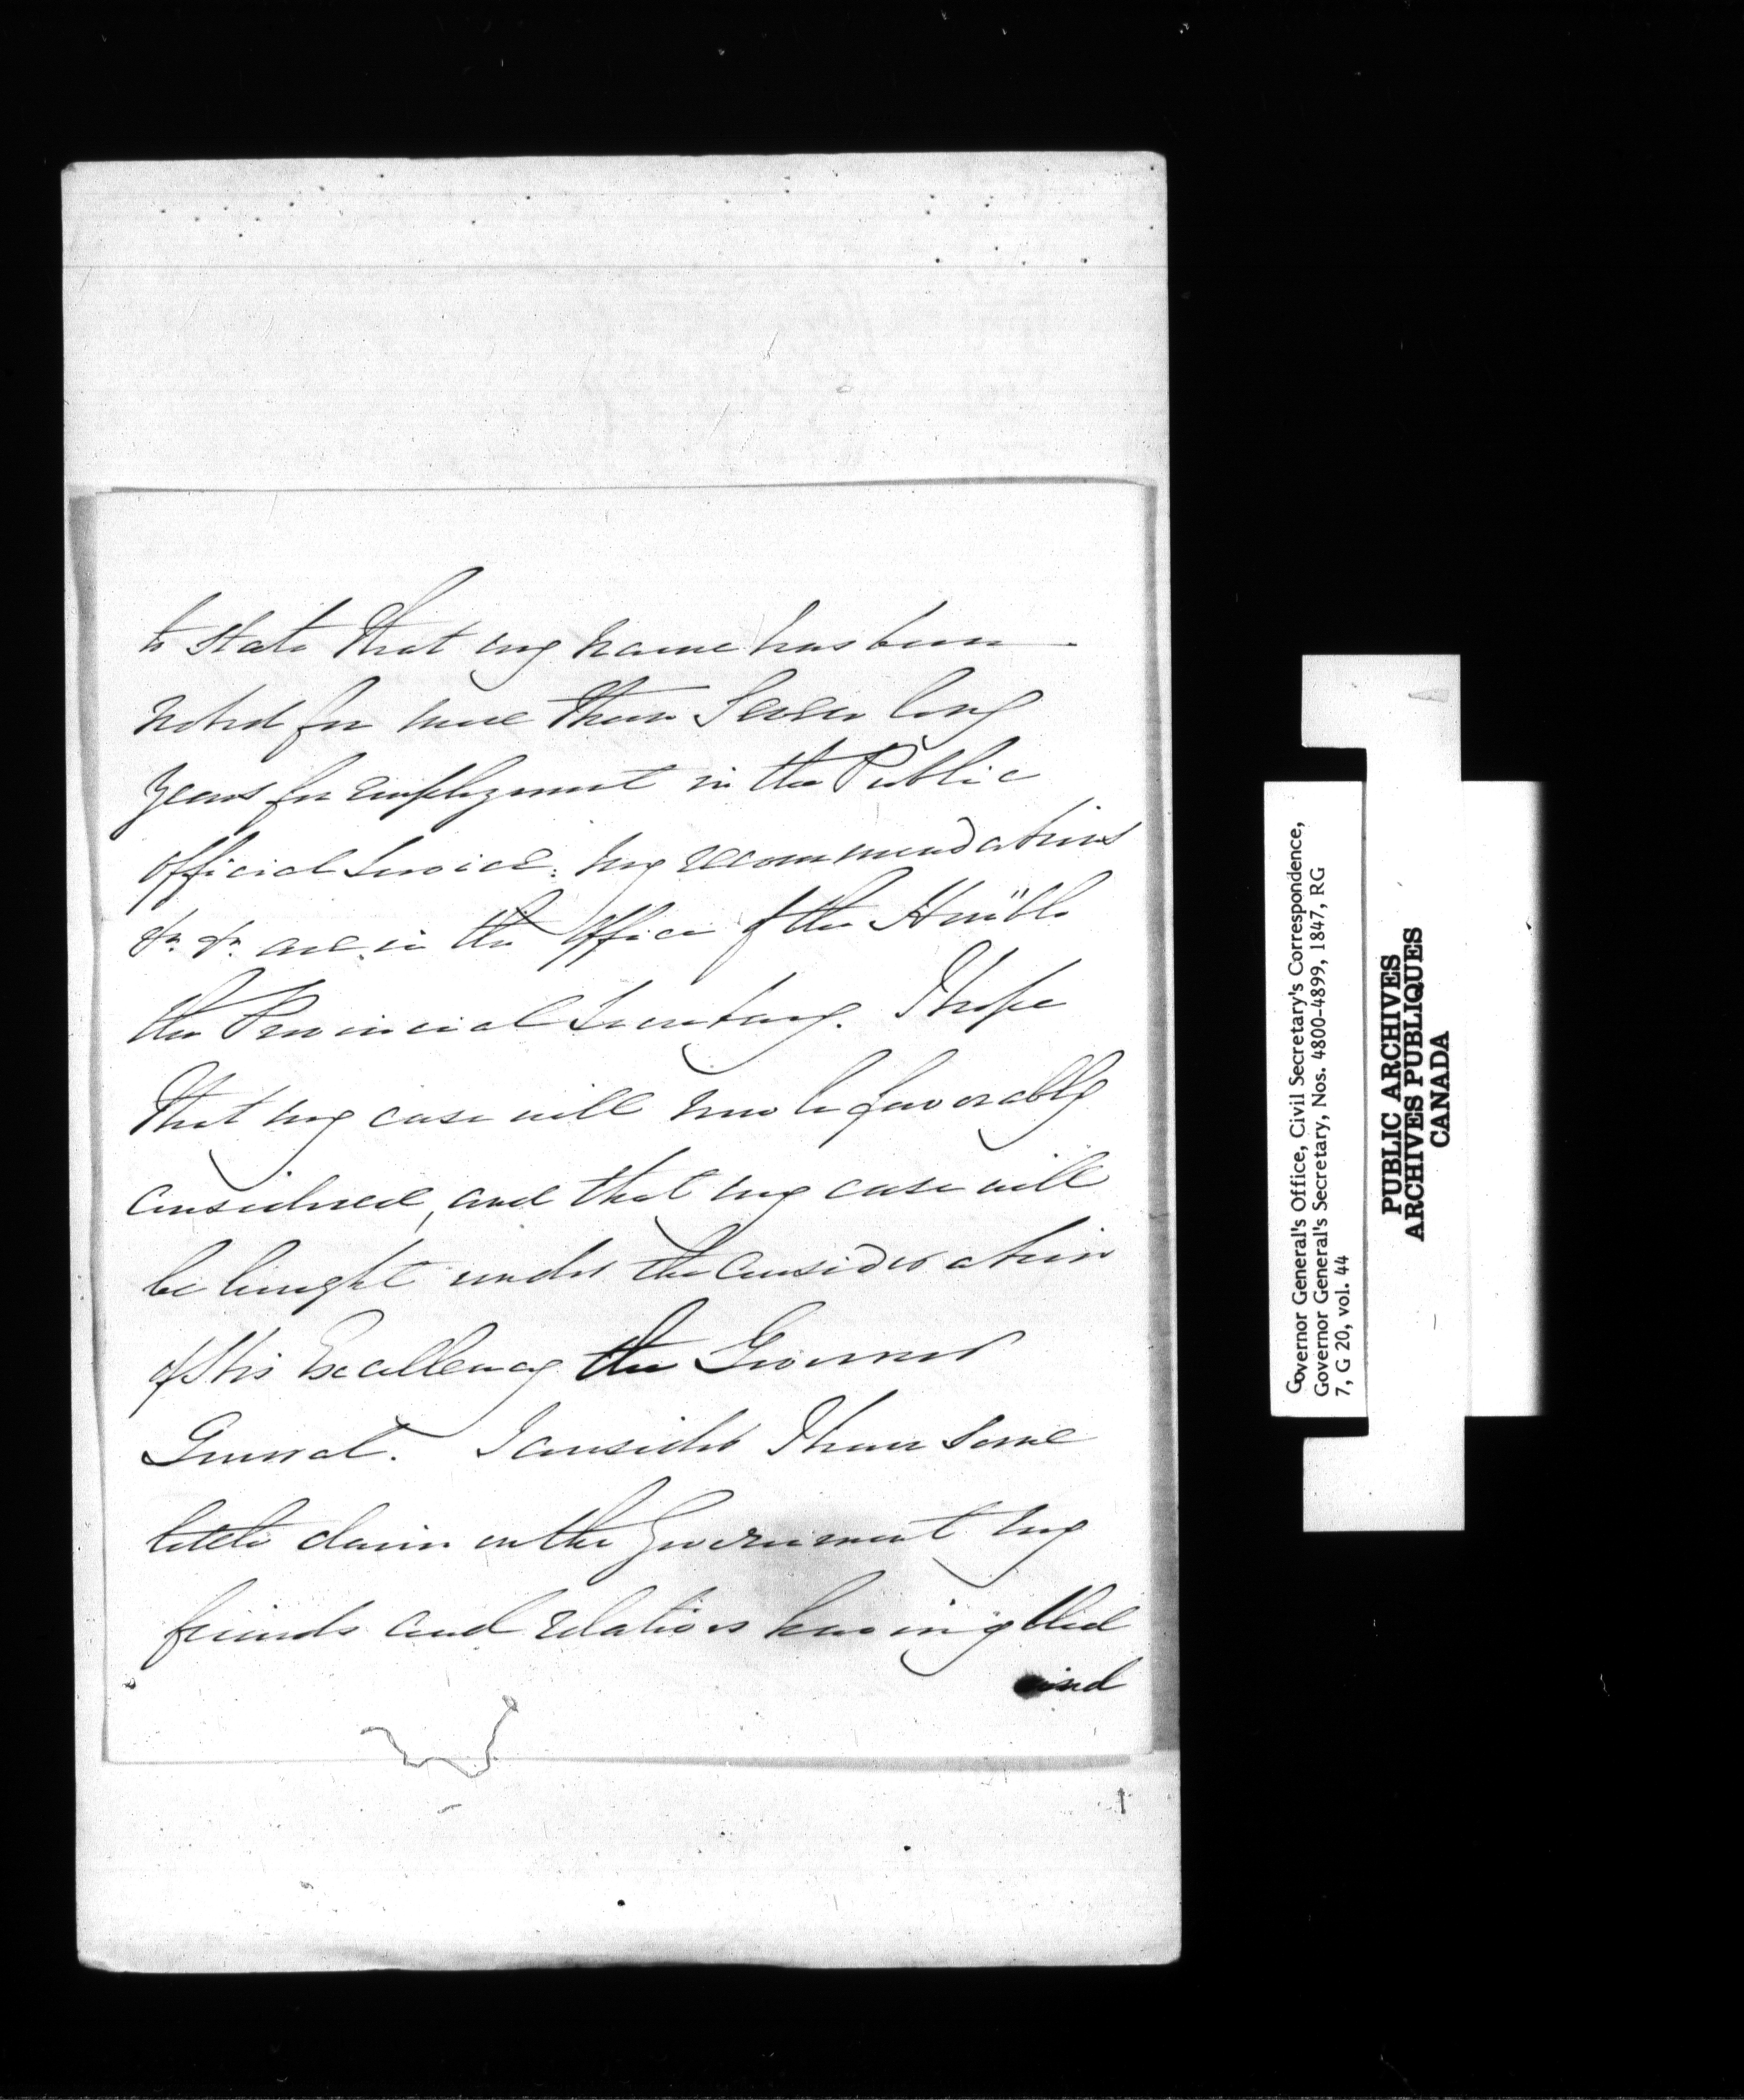 to state that my name has been
noted for more than Seven long
years for employment in the Public
official Service: my recommendations
&c. &c. are in the Office of the Hon'ble
the Provincial Secretary. I hope
that my case will now be favorably
considered, and that my case will
be brought under the consideration
of His Excellency the Governor
General. I consider I have some
little claim on the Government my
friends and relations having bled
and
Governor General's Office, Civil Secretary's Correspondence,
Governor General's Secretary, Nos. 4800-4899, 1847, RG
7, G 20, vol. 44
PUBLIC ARCHIVES
ARCHIVES PUBLIQUES
CANADA